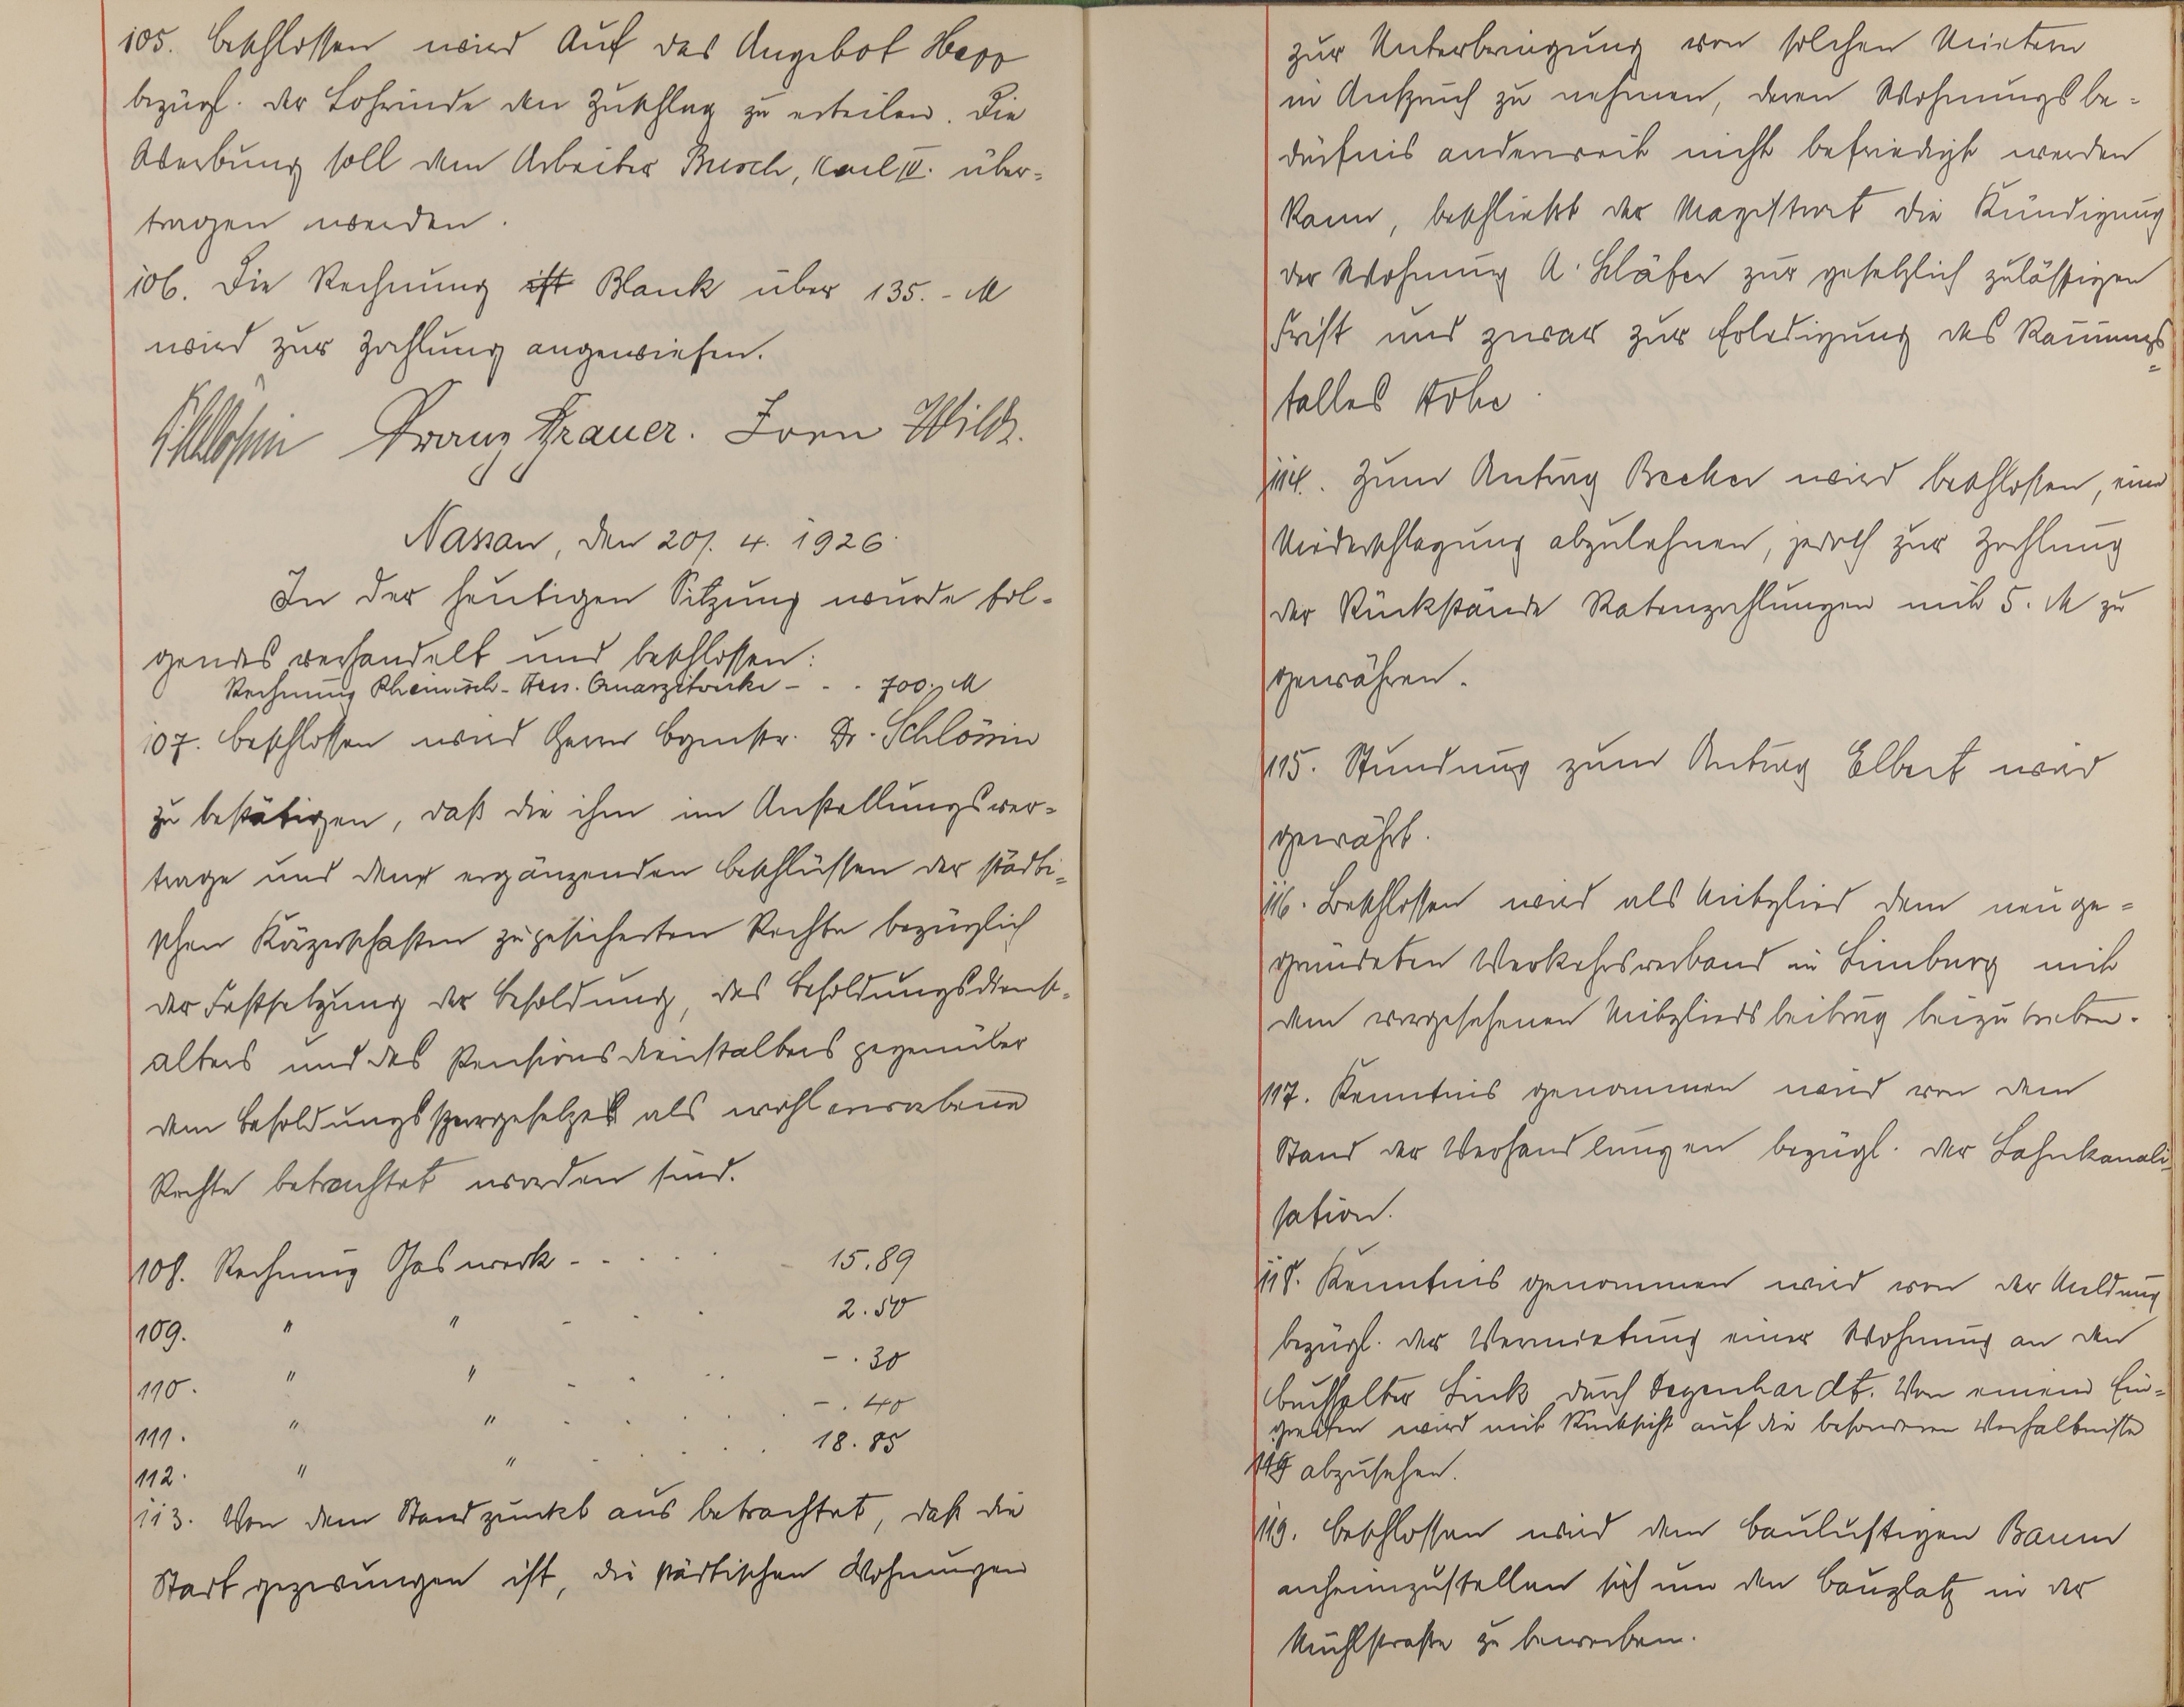 105. Beschlossen wird auf das Angebot Hepp
bezügl. der Lohrinde den Zuschlag zu erteilen. Die
Werbung soll dem Arbeiter Busch, Karl IV. über-
tragen werden.
106. Die Rechnung ist Blank über 135.- M
wird zur Zahlung angewiesen.
Schlössin Franz Trauer. Jorn Wilh.
Nassau, den 20. 4. 1926.
In der heutigen Sitzung wurde fol-
gendes verhandelt und beschlossen:
Rechnung Rheinisch-Hess. Quarzitwerke - - . 700. M
107. Beschlossen wird Herrn Bgmstr. Dr. Schlössin
zu bestätigen, daß die ihm im Anstellungsver-
trage und den ergänzenden Beschlüssen der städti-
schen Körperschaften zugesicherten Rechte bezüglich
der Festsetzung der Besoldung, des Besoldungsdienst-
alters und des Pensionsdienstalters gegenüber
dem Besoldungssperrgesetzes als wohlerworbene
Rechte betrachtet worden sind.
108. Rechnung Gaswerk - - . . . - 15.89
109. " " - . . 2.50
110. " " - . . . -.30
111. " " . . . . . -.40
112. " " . . . . 18.85
113. Von dem Standpunkt aus betrachtet, daß die
Stadt gezwungen ist, die städtischen Wohnungen
zur Unterbringung von solchen Mietern
in Anspruch zu nehmen, deren Wohnungsbe-
dürfnis anderweit nicht befriedigt werden
kann, beschließt der Magistrat die Kündigung
der Wohnung A. Schäfer zur gesetzlich zulässigen
Frist und zwar zur Erledigung des Räumungs-
falles
114. Zum Antrag Becker wird beschlossen, eine
Niederschlagung abzulehnen, jedoch zur Zahlung
der Rückstände Ratenzahlungen mit 5. M zu
gewähren.
115. Stundung zum Antrag Elbert wird
gewährt.
116. Beschlossen wird als Mitglied dem neuge-
gründeten Verkehrsverband in Limburg mit
dem vorgesehenen Mitgliedsbeitrag beizutreten.
117. Kenntnis genommen wird von dem
Stand der Verhandlungen bezügl. der Lahnkanali-
sation.
118. Kenntnis genommen wird von der Meldung
bezügl. der Vermietung einer Wohnung an den
Buchhalter Linck durch Degenhardt. Von einem Ein-
greifen wird mit Rücksicht auf die besonderen Verhältnisse
119 abzusehen.
119. Beschlossen wird dem Baulustigen Baum
anheimzustellen sich um den Bauplatz in der
Mühlstraße zu bewerben.